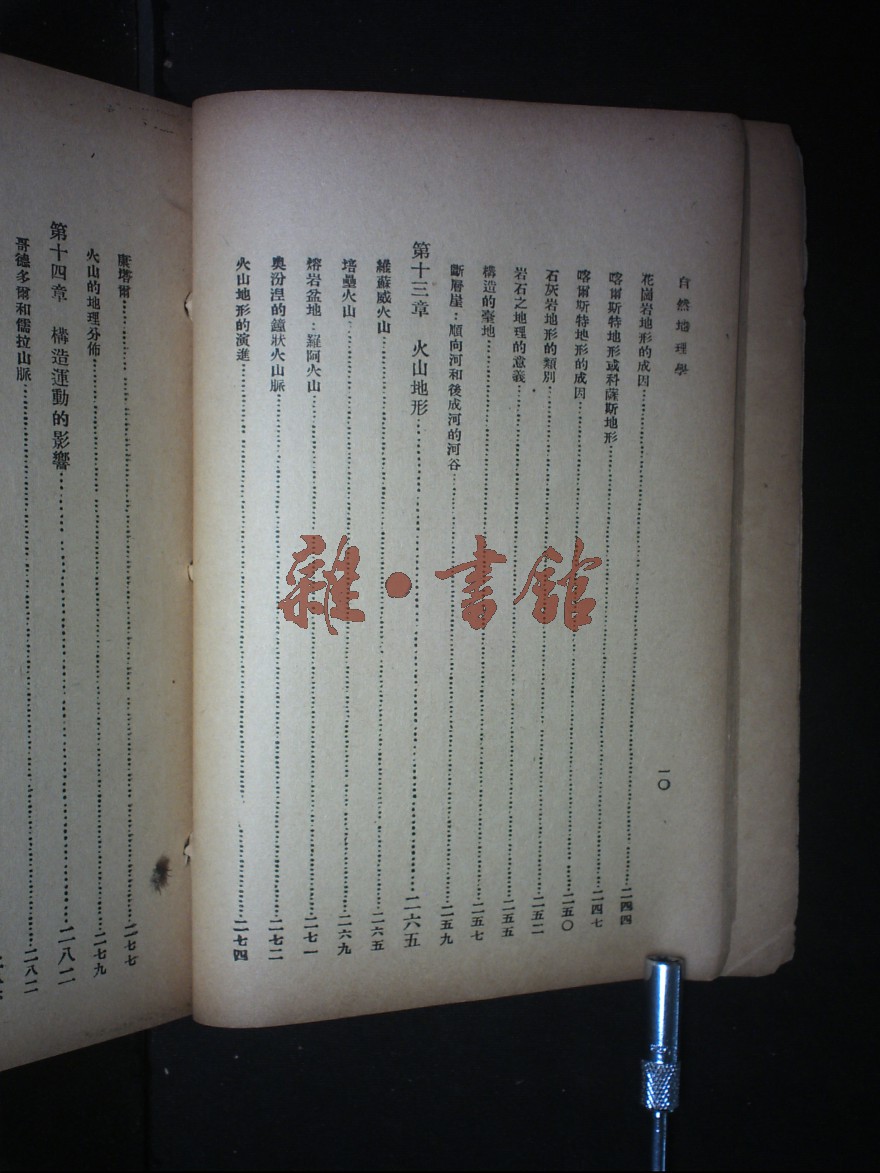 自然地理學
一〇
花崗岩地形的成因……二四四
喀爾斯特地形或科薩斯地形……二四七
喀爾斯特地形的成因……二五〇
石灰岩地形的類別……二五二
岩石之地理的意義……二五五
構造的臺地……二五七
斷層崖：順向河和後成河的河谷……二五九
第十三章 火山地形……二六五
維蘇威火山……二六五
培壘火山……二六九
熔岩盆地：羅阿火山……二七一
奧汾涅的鐘狀火山脈……二七二
火山地形的演進……二七四
康塔爾……二七七
火山的地理分佈……二七九
第十四章 構造運動的影響……二八二
哥德多爾和儒拉山脈……二八二
雜·書館